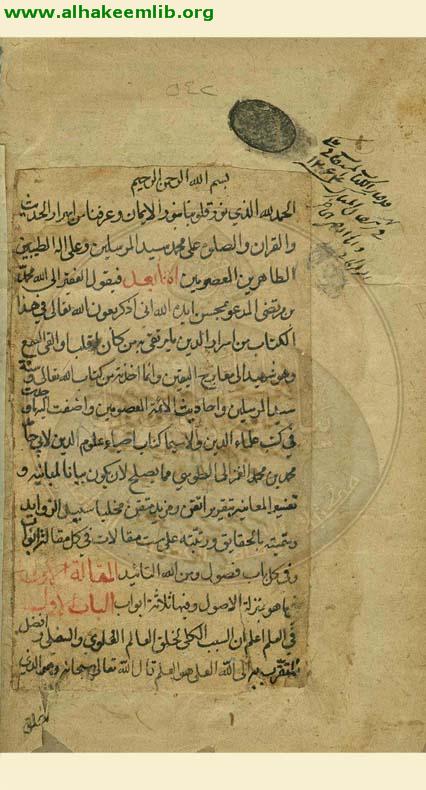 www.alhakeemlib.org
٥٤٢
بسم الله الرحمن الرحيم
الحمد لله الذي نور قلوبنا بنور الايمان وعرفنا من اسرار الحديث
والقران والصلوة على محمد سيد المرسلين وعلى اله الطيبين
الطاهرين المعصومين اما بعد فيقول الفقير الى الله محمد
بن مرتضى المدعو بمحسن ايده الله انى اذكر بعون الله تعالى في هذا
الكتاب من اسرار الدين ما يرتقى به من كان له قلب والقى السمع
وهو شهيد الى معارج اليقين وانما اخذته من كتاب الله تعالى وسنة
سيد المرسلين واحاديث الائمة المعصومين واضفت اليها ما وجدت
في كتب علماء الدين ولا سيما كتاب احياء علوم الدين لابي حامد
محمد بن محمد الغزالى الطوسي مما يصلح لان يكون بيانا لمبانيه و
تفسيرا لمعانيه بتقرير اتقن ومزيد تيقن مخليا سبيل الزوايد
وسميته بالحقايق ورتبته على ست مقالات في كل مقالة ابواب
وفي كل باب فصول ومن الله التائيد المقالة الاولى
فيما هو بمنزلة الاصول وفيها ثلاثة ابواب الباب الاول
في العلم اعلم ان السبب الكلى لخلق العالم العلوى والسفلى وافضل
المتقرب به الى الله العلى هو العلم قال الله تعالى سبحانه وهو الذى
خلق